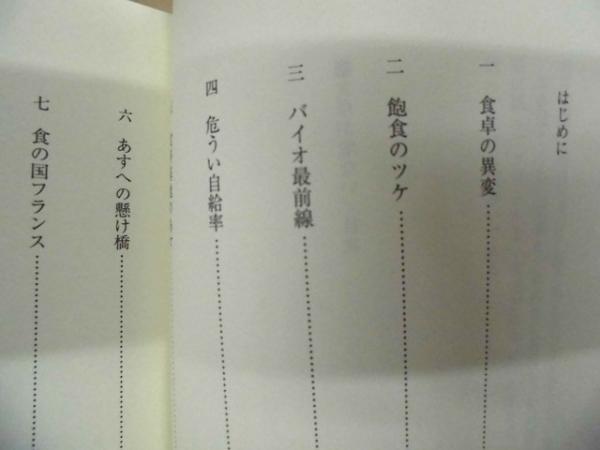 はじめに
一 食卓の異変
二 飽食のツケ
三 バイオ最前線
四 危うい自給率
六 あすへの懸け橋
七 食の国フランス